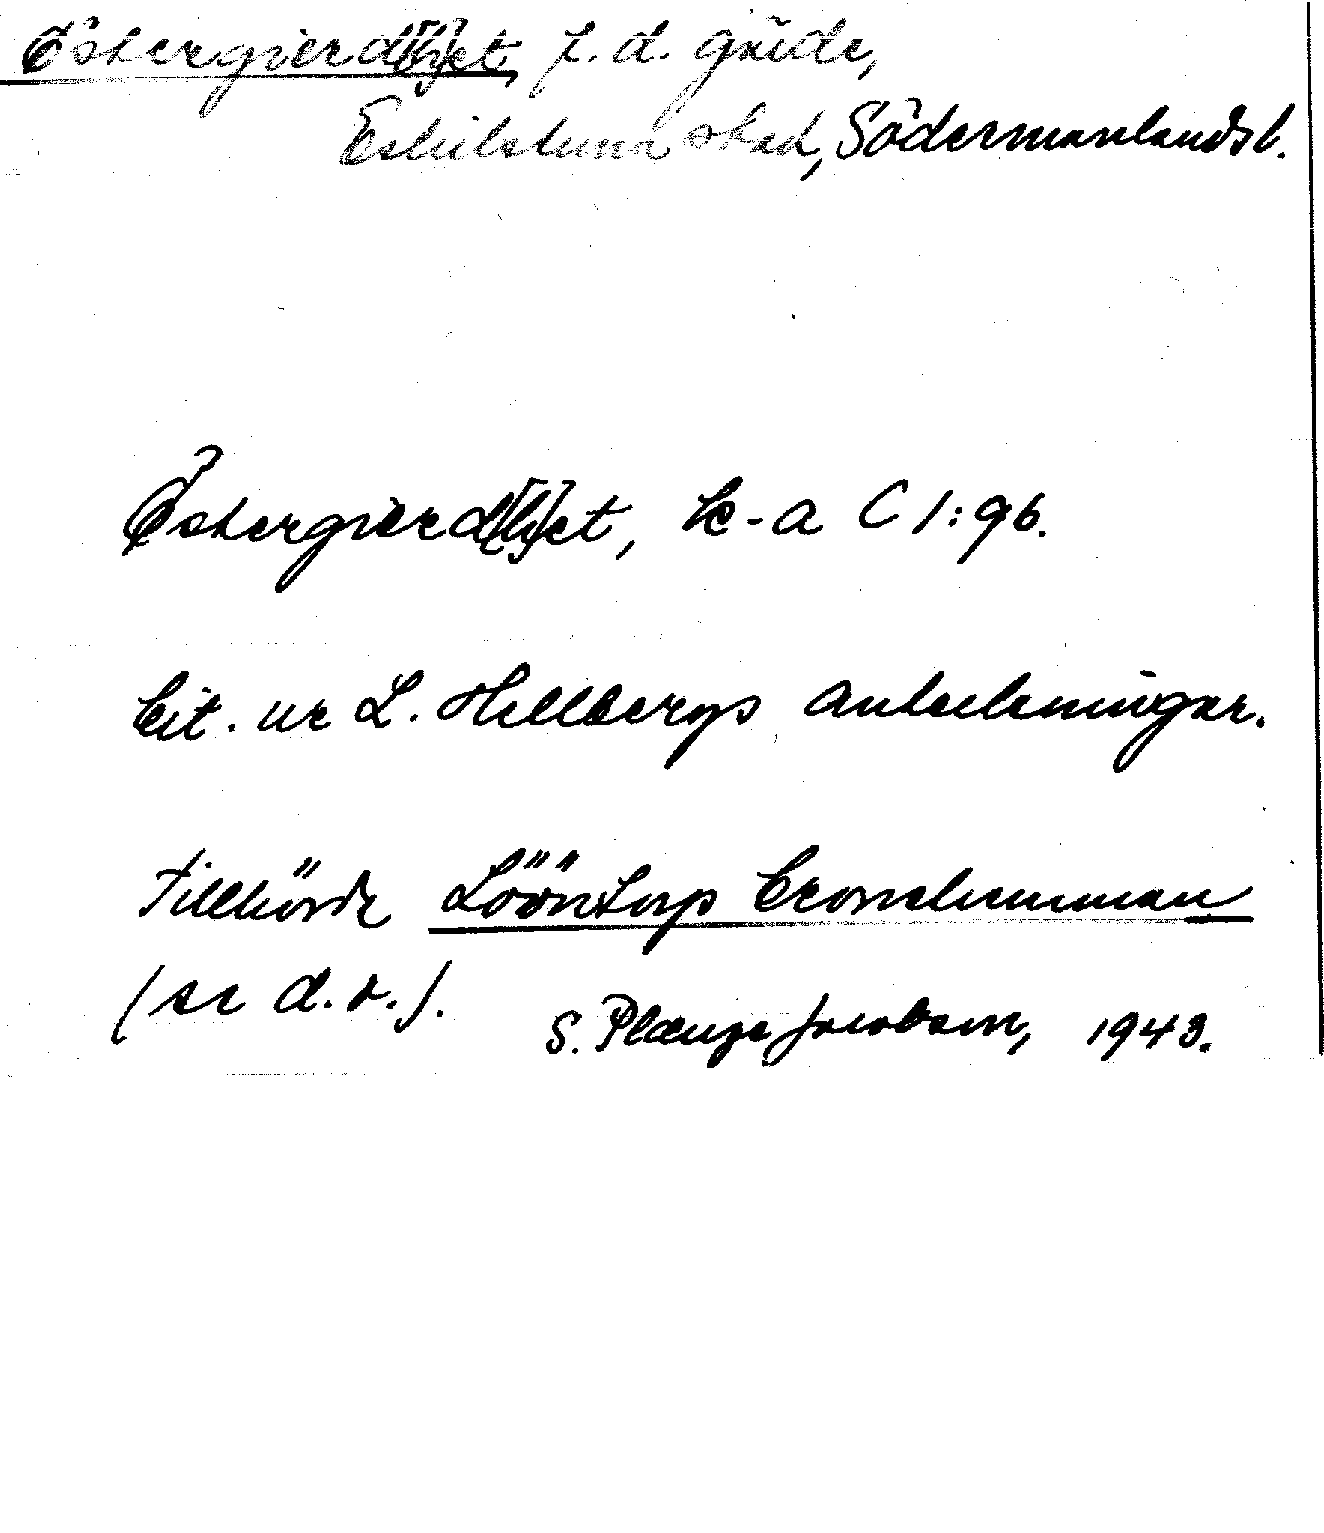 Östergierd[h]et, f.d. gärde,
Eskilstuna stad, Södermanlands l.
Östergierd[h]et, LC-a C 1:96.
Cit. ur L. Hellbergs anteckningar.
Tillhörde Lööntorp Cronohemman
(se d.o.).
S. Plænge Jacobson, 1943.